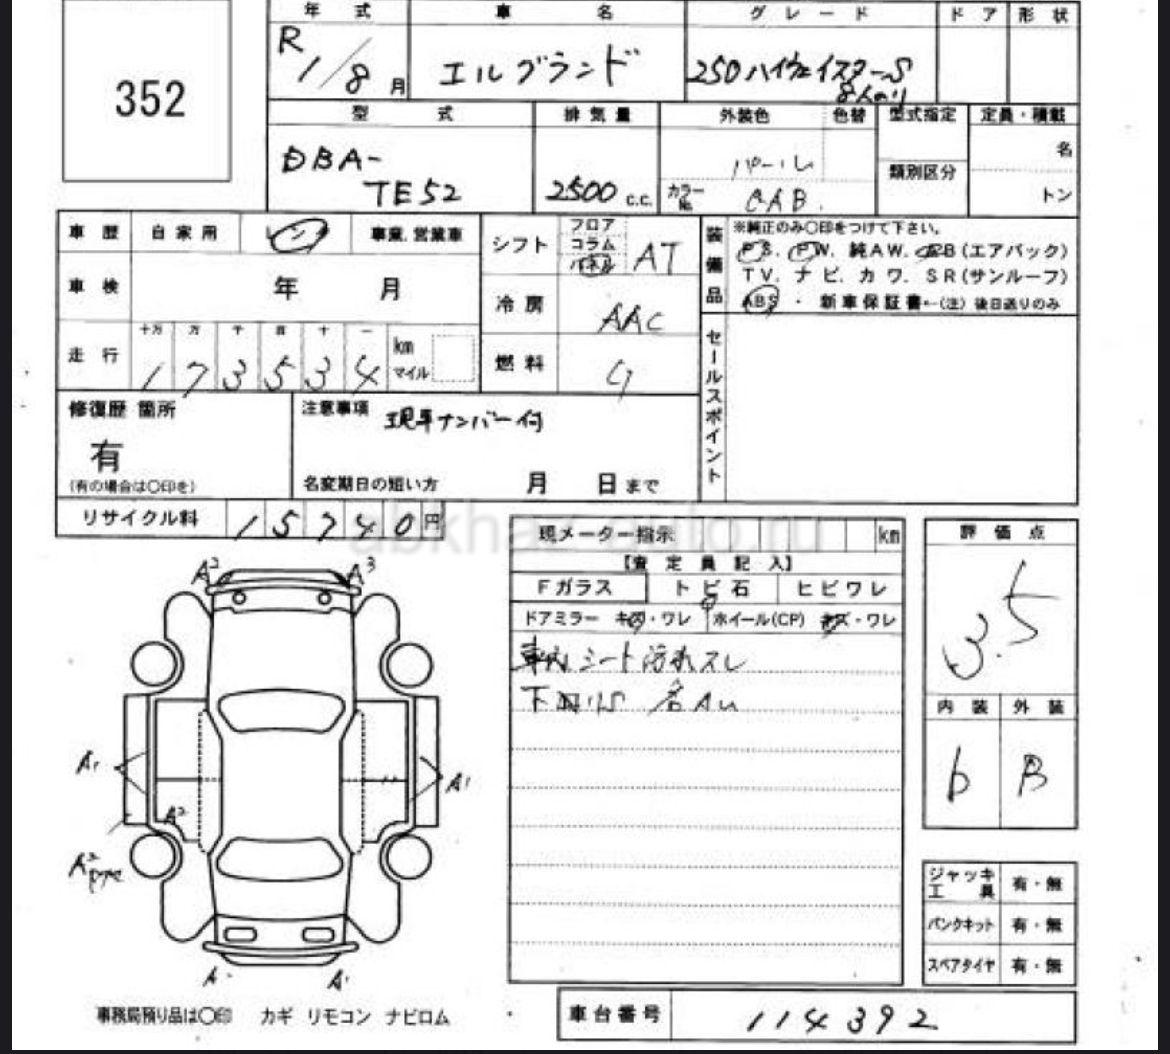 352
年式 車名 グレード ドア 形状
R 1/8月 エルグランド 250ハイウェイスターS
8人のり
型式 排気量 外装色 色替 型式指定 定員・積載
DBA- パール 名
TE52 2500 c.c. カラーNo. QAB. 類別区分 トン
車歴 自家用 レンタ 事業.営業車
車検 年 月
走行 十万 万 千 百 十 一
1 7 3 5 3 4 km マイル
シフト フロア コラム AT
冷房 AAC
燃料 G
装備品 ※純正のみ〇印をつけて下さい。
PS. PW. 純AW. AB(エアバック)
TV. ナビ. カワ. SR(サンルーフ)
ABS ・ 新車保証書←(注) 後日送りのみ
セールスポイント
修復歴 箇所
有
(有の場合は〇印を)
注意事項 現車ナンバー付
名変期日の短い方 月 日まで
リサイクル料 15740円
abkhaz-auto.ru
現メーター指示 km
【査定員記入】
Fガラス トビ石 ヒビワレ
ドアミラー キズ・ワレ ホイール(CP) キズ・ワレ
車内シート汚れスレ
評価点
3.5
内装 外装
b B
A2 A3
A1 A1
A2
A2
A- A1
ジャッキ工具 有・無
パンクキット 有・無
スペアタイヤ 有・無
事務局預り品は〇印 カギ リモコン ナビロム
車台番号 114392